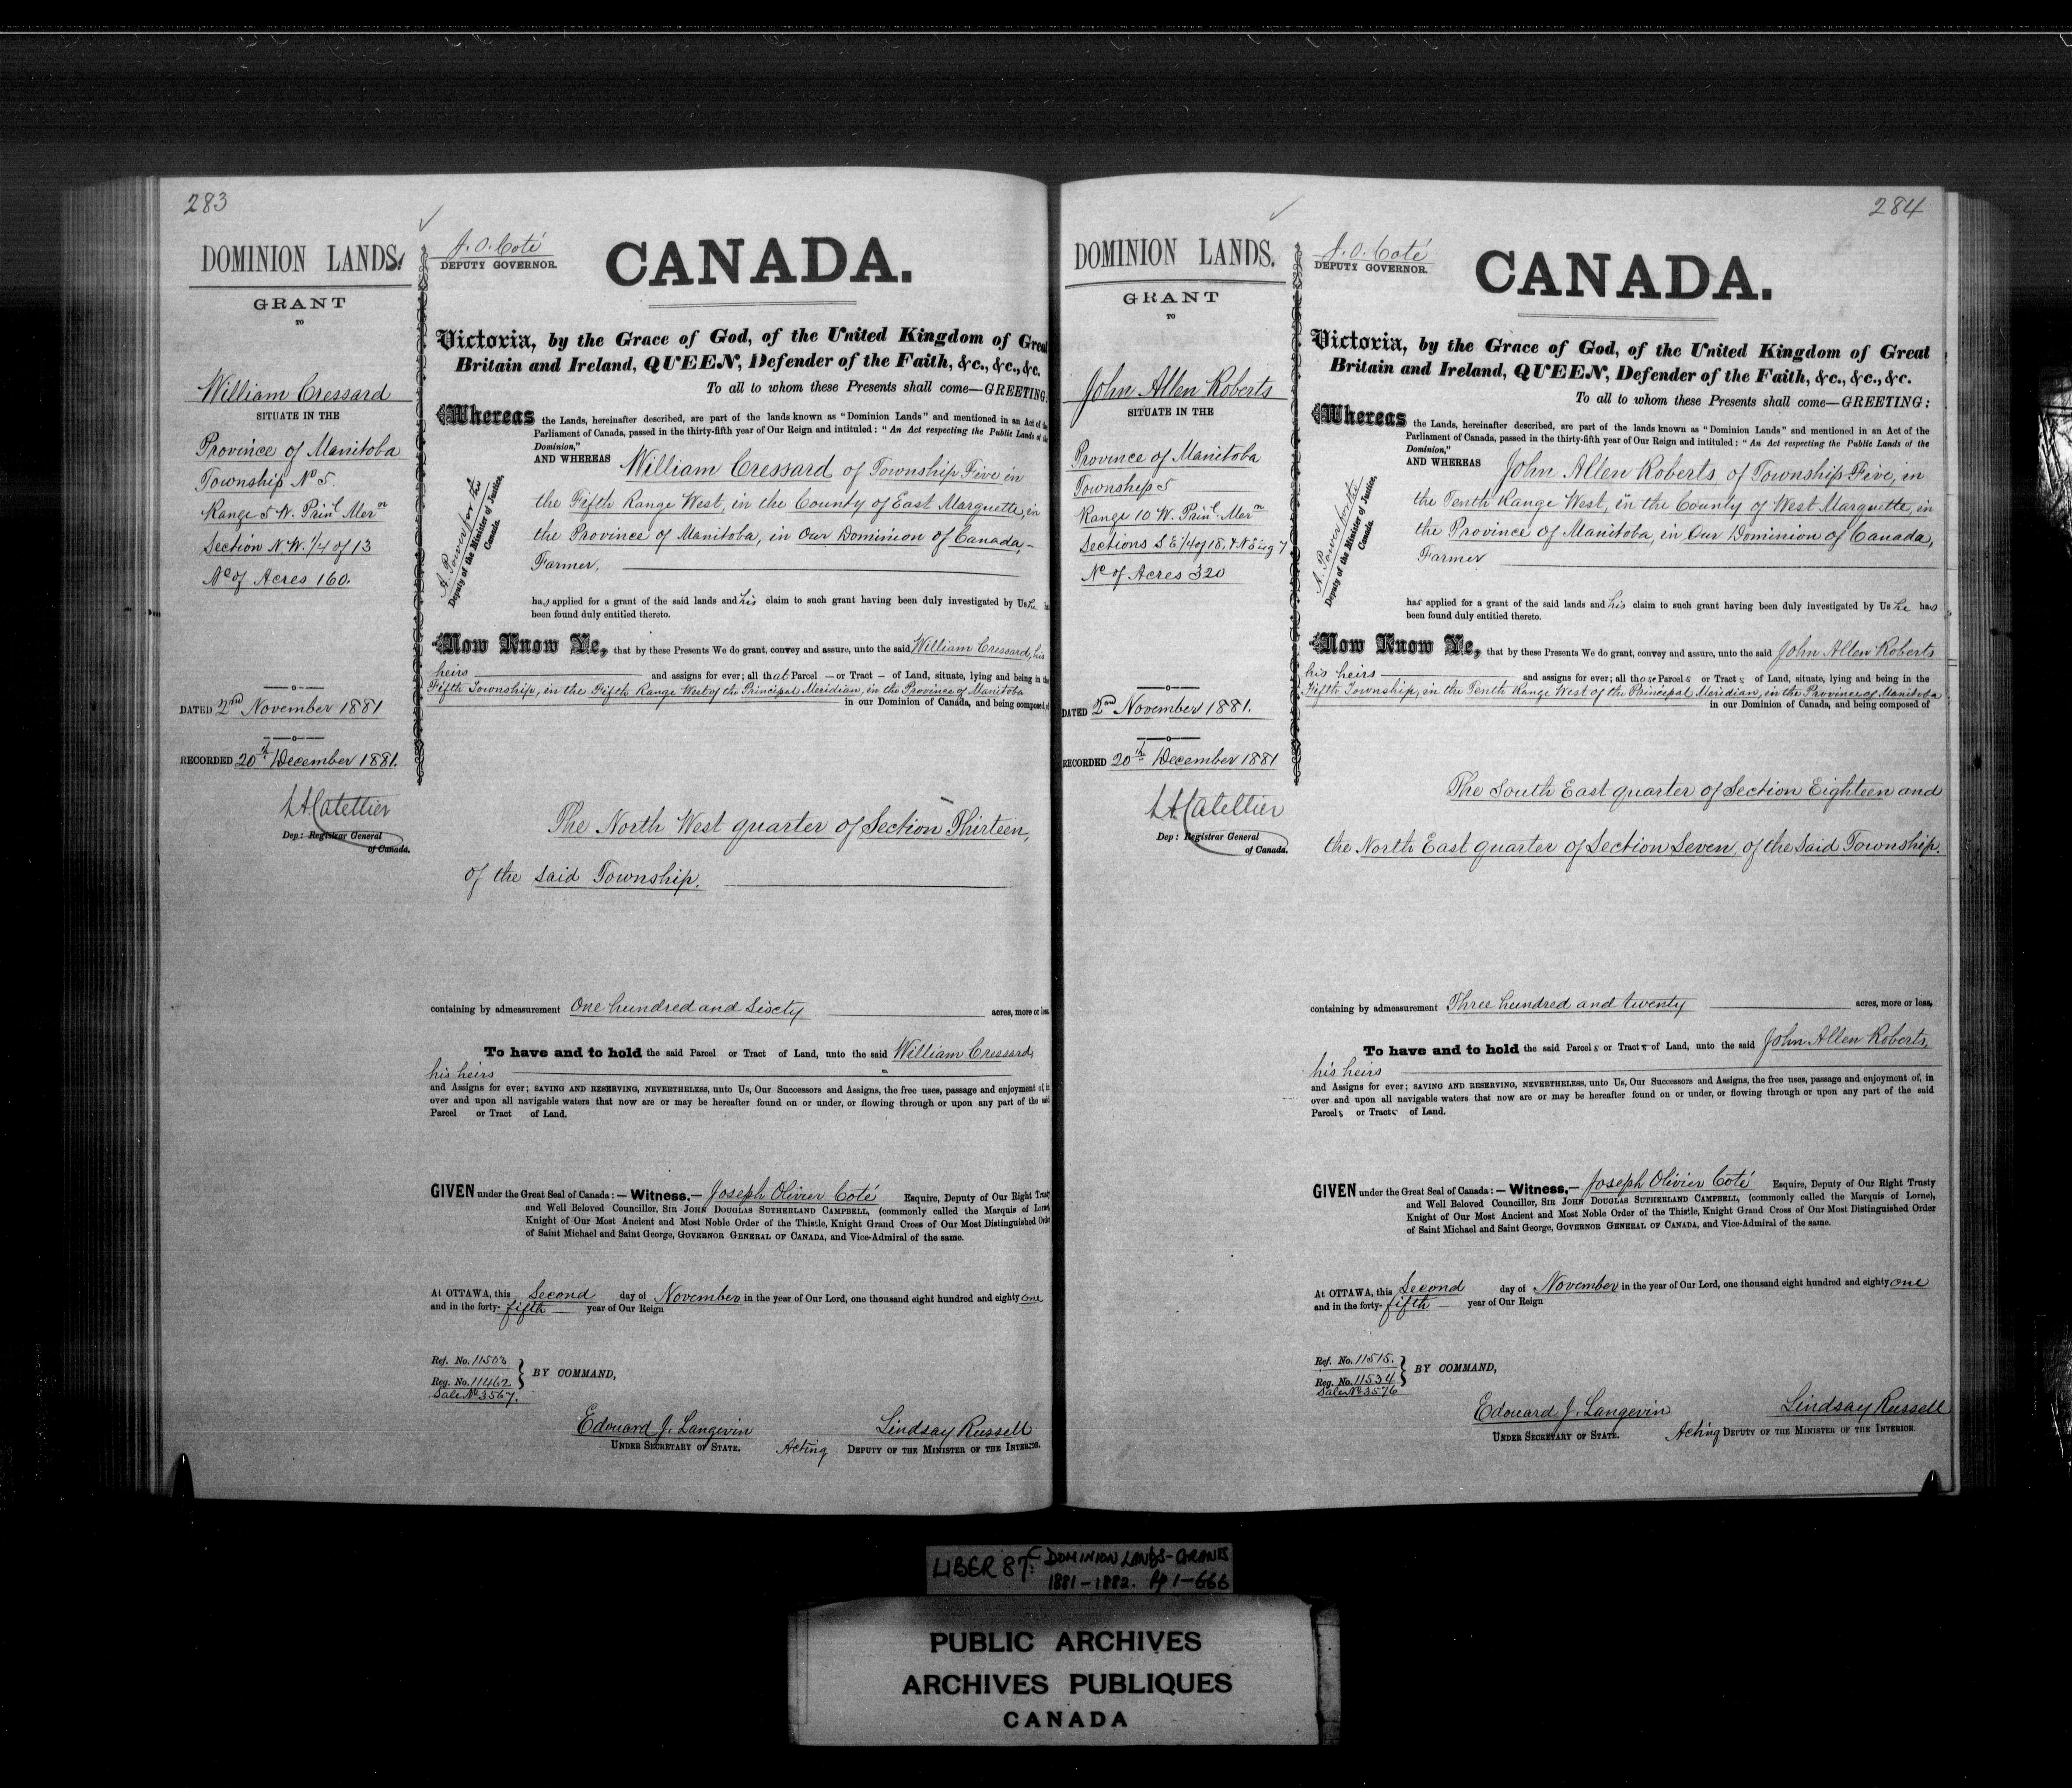 283
DOMINION LANDS.
GRANT
TO
William Cressard
SITUATE IN THE
Province of Manitoba
Township No 5.
Range 5 W. Prinl Mern
Section N W. 1/4 of 13
No of Acres 160.
DATED 2nd November 1881
RECORDED 20th December 1881.
Dep: Registrar General
of Canada.
J. O. Coté
DEPUTY GOVERNOR.
CANADA.
Victoria, by the Grace of God, of the United Kingdom of Great
Britain and Ireland, QUEEN, Defender of the Faith, &c., &c., &c.
To all to whom these Presents shall come—GREETING:
Whereas the Lands, hereinafter described, are part of the lands known as "Dominion Lands" and mentioned in an Act of the
Parliament of Canada, passed in the thirty-fifth year of Our Reign and intituled: "An Act respecting the Public Lands of the
Dominion,"
AND WHEREAS William Cressard of Township Five in
the Fifth Range West, in the County of East Marquette, in
the Province of Manitoba, in Our Dominion of Canada,-
Farmer,
A. Power for the
Deputy of the Minister of Justice,
Canada.
has applied for a grant of the said lands and his claim to such grant having been duly investigated by Us he has
been found duly entitled thereto.
Now Know Ye, that by these Presents We do grant, convey and assure, unto the said William Cressard, his
heirs and assigns for ever; all that Parcel — or Tract — of Land, situate, lying and being in the
Fifth Township, in the Fifth Range West of the Principal Meridian, in the Province of Manitoba
in our Dominion of Canada, and being composed of
The North West quarter of Section Thirteen,
of the said Township.
containing by admeasurement One hundred and Sixty acres, more or less.
To have and to hold the said Parcel or Tract of Land, unto the said William Cressard,
his heirs
and Assigns for ever; SAVING AND RESERVING, NEVERTHELESS, unto Us, Our Successors and Assigns, the free uses, passage and enjoyment of, in
over and upon all navigable waters that now are or may be hereafter found on or under, or flowing through or upon any part of the said
Parcel or Tract of Land.
GIVEN under the Great Seal of Canada:— Witness,— Joseph Olivier Coté Esquire, Deputy of Our Right Trusty
and Well Beloved Councillor, SIR JOHN DOUGLAS SUTHERLAND CAMPBELL, (commonly called the Marquis of Lorne),
Knight of Our Most Ancient and Most Noble Order of the Thistle, Knight Grand Cross of Our Most Distinguished Order
of Saint Michael and Saint George, GOVERNOR GENERAL OF CANADA, and Vice-Admiral of the same.
At OTTAWA, this Second day of November in the year of Our Lord, one thousand eight hundred and eighty one
and in the forty- fifth year of Our Reign
Ref. No. 11503
Reg. No. 11462
Sale No 3567.
BY COMMAND,
Edouard J. Langevin
UNDER SECRETARY OF STATE.
Lindsay Russell
Acting DEPUTY OF THE MINISTER OF THE INTERIOR.
284
DOMINION LANDS.
GRANT
TO
John Allen Roberts
SITUATE IN THE
Province of Manitoba
Township 5
Range 10 W. Prinl Mern
Sections S E 1/4 of 18, & N E 1/4 of 7
No of Acres 320
DATED 2nd November 1881.
RECORDED 20th December 1881
Dep: Registrar General
of Canada.
J. O. Coté
DEPUTY GOVERNOR.
CANADA.
Victoria, by the Grace of God, of the United Kingdom of Great
Britain and Ireland, QUEEN, Defender of the Faith, &c., &c., &c.
To all to whom these Presents shall come—GREETING:
Whereas the Lands, hereinafter described, are part of the lands known as "Dominion Lands" and mentioned in an Act of the
Parliament of Canada, passed in the thirty-fifth year of Our Reign and intituled: "An Act respecting the Public Lands of the
Dominion,"
AND WHEREAS John Allen Roberts of Township Five, in
the Tenth Range West, in the County of West Marquette, in
the Province of Manitoba, in Our Dominion of Canada,
Farmer
A. Power for the
Deputy of the Minister of Justice,
Canada.
has applied for a grant of the said lands and his claim to such grant having been duly investigated by Us he has
been found duly entitled thereto.
Now Know Ye, that by these Presents We do grant, convey and assure, unto the said John Allen Roberts
his heirs and assigns for ever; all those Parcels or Tracts of Land, situate, lying and being in the
Fifth Township, in the Tenth Range West of the Principal Meridian, in the Province of Manitoba
in our Dominion of Canada, and being composed of
The South East quarter of Section Eighteen and
the North East quarter of Section Seven, of the said Township.
containing by admeasurement Three hundred and twenty acres, more or less.
To have and to hold the said Parcels or Tracts of Land, unto the said John Allen Roberts,
his heirs
and Assigns for ever; SAVING AND RESERVING, NEVERTHELESS, unto Us, Our Successors and Assigns, the free uses, passage and enjoyment of, in
over and upon all navigable waters that now are or may be hereafter found on or under, or flowing through or upon any part of the said
Parcels or Tracts of Land.
GIVEN under the Great Seal of Canada:— Witness,— Joseph Olivier Coté Esquire, Deputy of Our Right Trusty
and Well Beloved Councillor, SIR JOHN DOUGLAS SUTHERLAND CAMPBELL, (commonly called the Marquis of Lorne),
Knight of Our Most Ancient and Most Noble Order of the Thistle, Knight Grand Cross of Our Most Distinguished Order
of Saint Michael and Saint George, GOVERNOR GENERAL OF CANADA, and Vice-Admiral of the same.
At OTTAWA, this Second day of November in the year of Our Lord, one thousand eight hundred and eighty one
and in the forty- fifth year of Our Reign
Ref. No. 11515.
Reg. No. 11534
Sale No 3576
BY COMMAND,
Edouard J. Langevin
UNDER SECRETARY OF STATE.
Lindsay Russell
Acting DEPUTY OF THE MINISTER OF THE INTERIOR.
LIBER 87C: DOMINION LANDS-GRANTS
1881-1882. Pp 1-666
PUBLIC ARCHIVES
ARCHIVES PUBLIQUES
CANADA